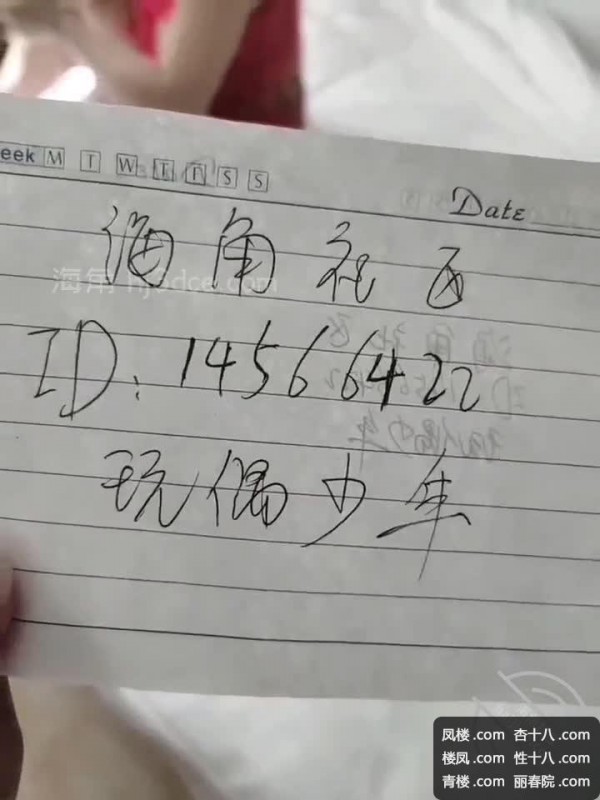 eek M T W T F S S
Date
海角社区
海角 hj3dce.com
ID: 14566422
玩偶少年
凤楼.com 杏十八.com
楼凤.com 性十八.com
青楼.com 丽春院.com